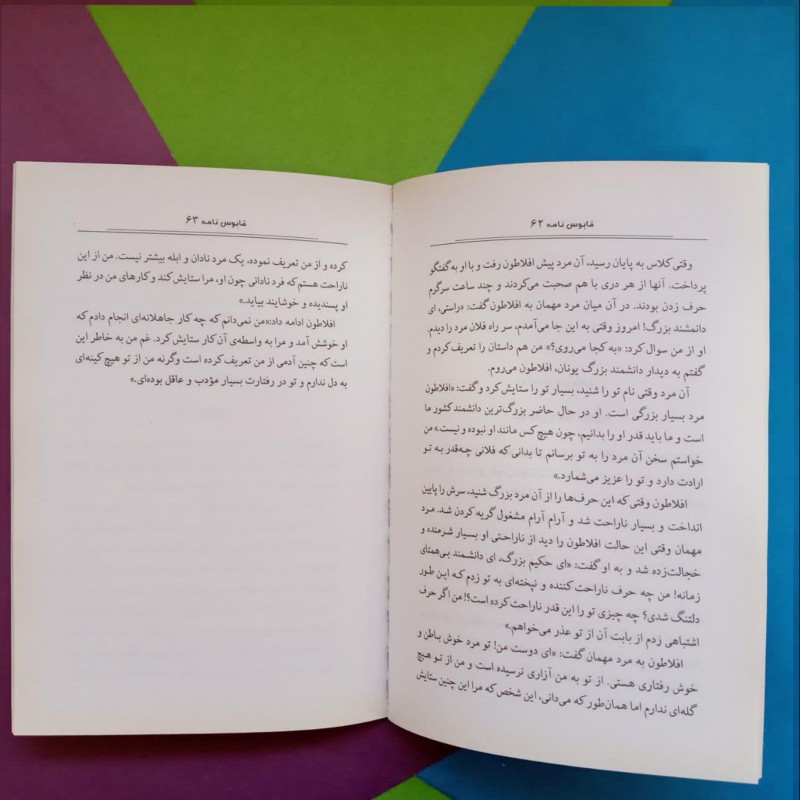 قابوس نامه ۶۲
وقتی کلاس به پایان رسید، آن مرد پیش افلاطون رفت و با او به گفتگو
پرداخت. آنها از هر دری با هم صحبت می‌کردند و چند ساعت سرگرم
حرف زدن بودند. در آن میان مرد مهمان به افلاطون گفت: «راستی، ای
دانشمند بزرگ! امروز وقتی به این جا می‌آمدم، سر راه فلان مرد را دیدم.
او از من سوال کرد: «به کجا می‌روی؟» من هم داستان را تعریف کردم و
گفتم به دیدار دانشمند بزرگ یونان، افلاطون می‌روم.
آن مرد وقتی نام تو را شنید، بسیار تو را ستایش کرد و گفت: «افلاطون
مرد بسیار بزرگی است. او در حال حاضر بزرگ‌ترین دانشمند کشور ما
است و ما باید قدر او را بدانیم، چون هیچ کس مانند او نبوده و نیست.» من
خواستم سخن آن مرد را به تو برسانم تا بدانی که فلانی چه‌قدر به تو
ارادت دارد و تو را عزیز می‌شمارد.»
افلاطون وقتی که این حرف‌ها را از آن مرد بزرگ شنید، سرش را پایین
انداخت و بسیار ناراحت شد و آرام آرام مشغول گریه کردن شد. مرد
مهمان وقتی این حالت افلاطون را دید از ناراحتی او بسیار شرمنده و
خجالت‌زده شد و به او گفت: «ای حکیم بزرگ، ای دانشمند بی‌همتای
زمانه! من چه حرف ناراحت کننده و نپخته‌ای به تو زدم که این طور
دلتنگ شدی؟ چه چیزی تو را این قدر ناراحت کرده است؟! من اگر حرف
اشتباهی زدم از بابت آن از تو عذر می‌خواهم.»
افلاطون به مرد مهمان گفت: «ای دوست من! تو مرد خوش باطن و
خوش رفتاری هستی. از تو به من آزاری نرسیده است و من از تو هیچ
گله‌ای ندارم اما همان‌طور که می‌دانی، این شخص که مرا این چنین ستایش
قابوس نامه ۶۳
کرده و از من تعریف نموده، یک مرد نادان و ابله بیشتر نیست. من از این
ناراحت هستم که فرد نادانی چون او، مرا ستایش کند و کارهای من در نظر
او پسندیده و خوشایند بیاید.»
افلاطون ادامه داد:«من نمی‌دانم که چه کار جاهلانه‌ای انجام دادم که
او خوشش آمد و مرا به واسطه‌ی آن کار ستایش کرد. غم من به خاطر این
است که چنین آدمی از من تعریف کرده است وگرنه من از تو هیچ کینه‌ای
به دل ندارم و تو در رفتارت بسیار مؤدب و عاقل بوده‌ای.»